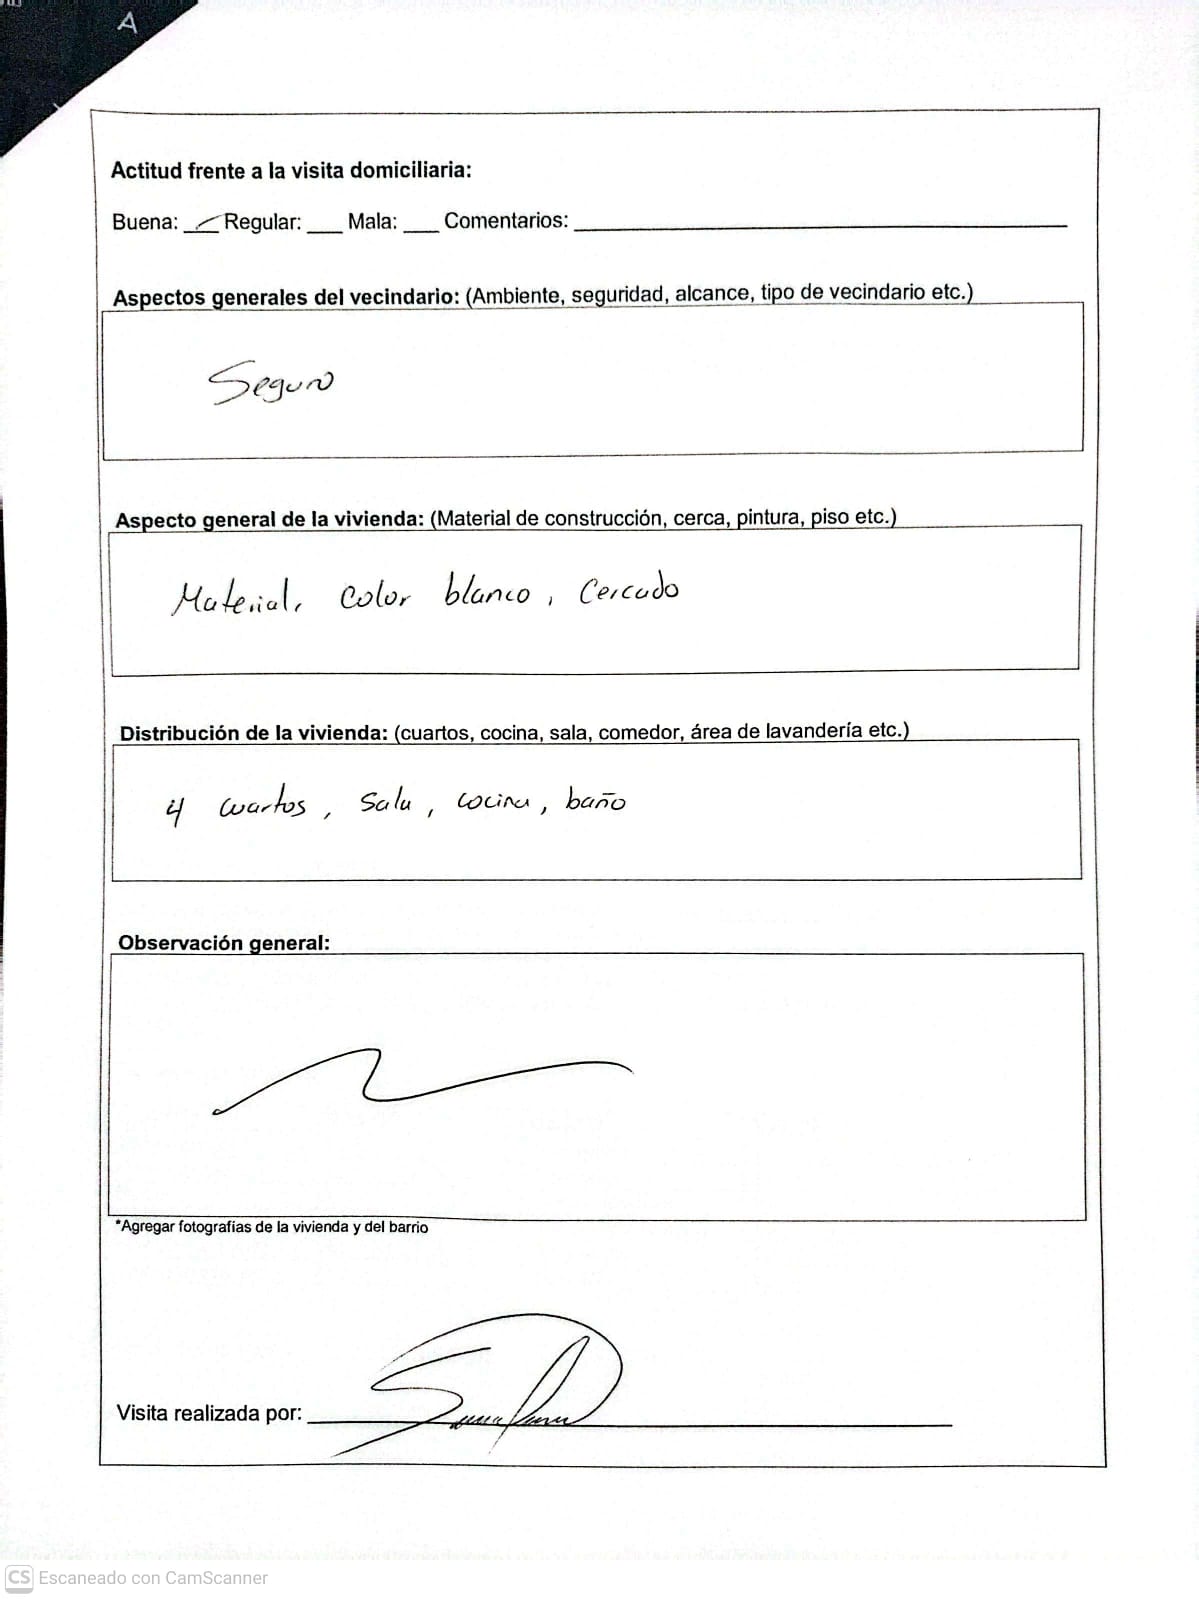 A
Actitud frente a la visita domiciliaria:
Buena: ___ Regular: ___ Mala: ___ Comentarios: ___
Aspectos generales del vecindario: (Ambiente, seguridad, alcance, tipo de vecindario etc.)
Seguro
Aspecto general de la vivienda: (Material de construcción, cerca, pintura, piso etc.)
Material, color blanco, cercado
Distribución de la vivienda: (cuartos, cocina, sala, comedor, área de lavandería etc.)
4 cuartos, sala, cocina, baño
Observación general:
*Agregar fotografías de la vivienda y del barrio
Visita realizada por:
CS Escaneado con CamScanner